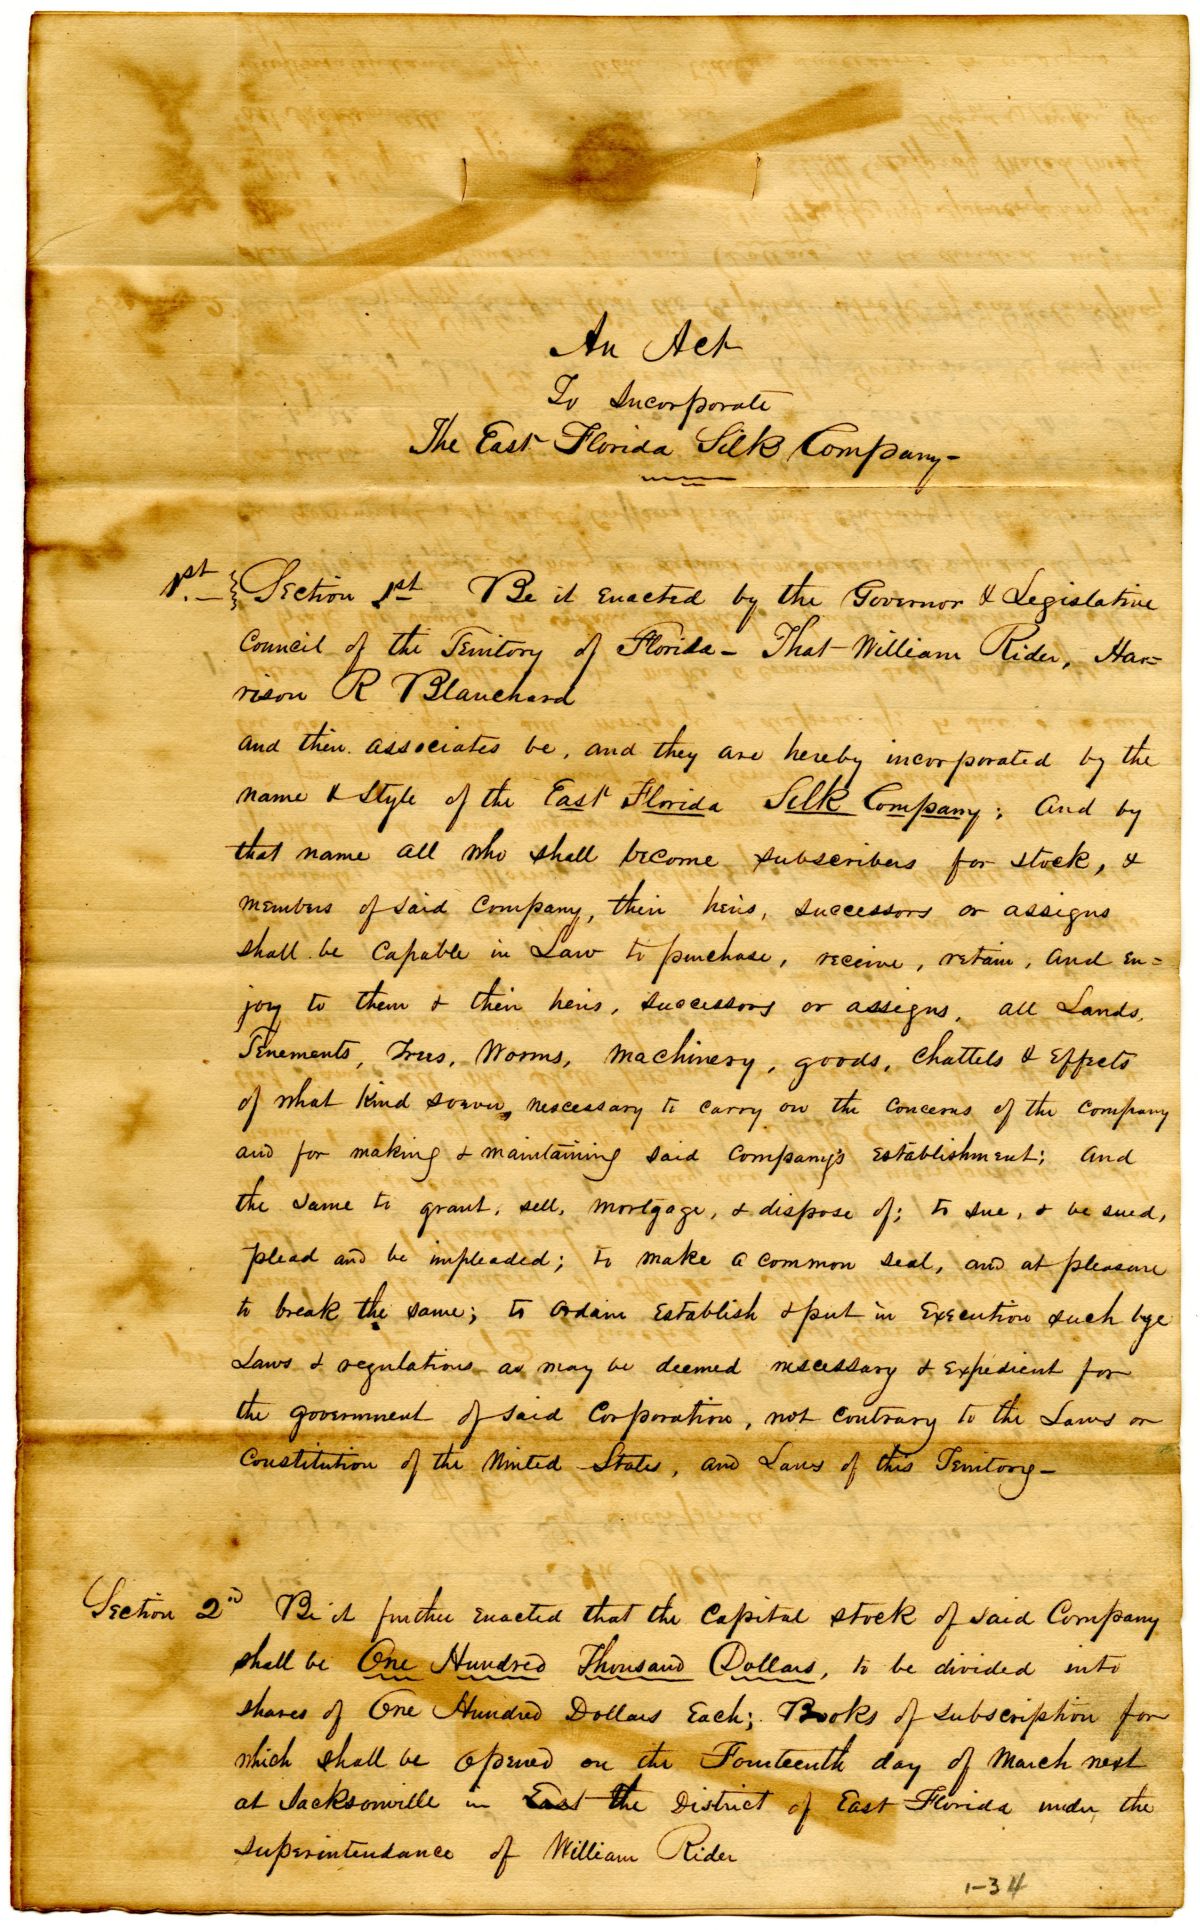 An Act
To Incorporate
The East Florida Silk Company-
1st.- Section 1st Be it enacted by the Governor & Legislative
Council of the Territory of Florida - That William Rider, Har=
rison R Blanchard
and their associates be, and they are hereby incorporated by the
name & Style of the East Florida Silk Company; And by
that name all who shall become subscribers for stock, &
members of said Company, their heirs, successors or assigns
shall be capable in Law to purchase, receive, retain, and en=
joy to them & their heirs, successors or assigns, all Lands,
Tenements, Trees, Worms, Machinery, goods, chattels & effects
of what kind soever, nescessary to carry on the concerns of the company
and for making & maintaining said company's establishment; and
the same to grant, sell, mortgage, & dispose of; to sue, & be sued,
plead and be impleaded; to make a common seal, and at pleasure
to break the same; to ordain establish & put in execution such bye
Laws & regulations as may be deemed nescessary & expedient for
the government of said Corporation, not contrary to the Laws or
Constitution of the United States, and Laws of this Territory-
Section 2nd Be it further enacted that the capital stock of said Company
shall be One Hundred Thousand Dollars, to be divided into
shares of One Hundred Dollars Each; Books of subscription for
which shall be opened on the Fourteenth day of March next
at Jacksonville in East the District of East Florida under the
superintendance of William Rider
1-34